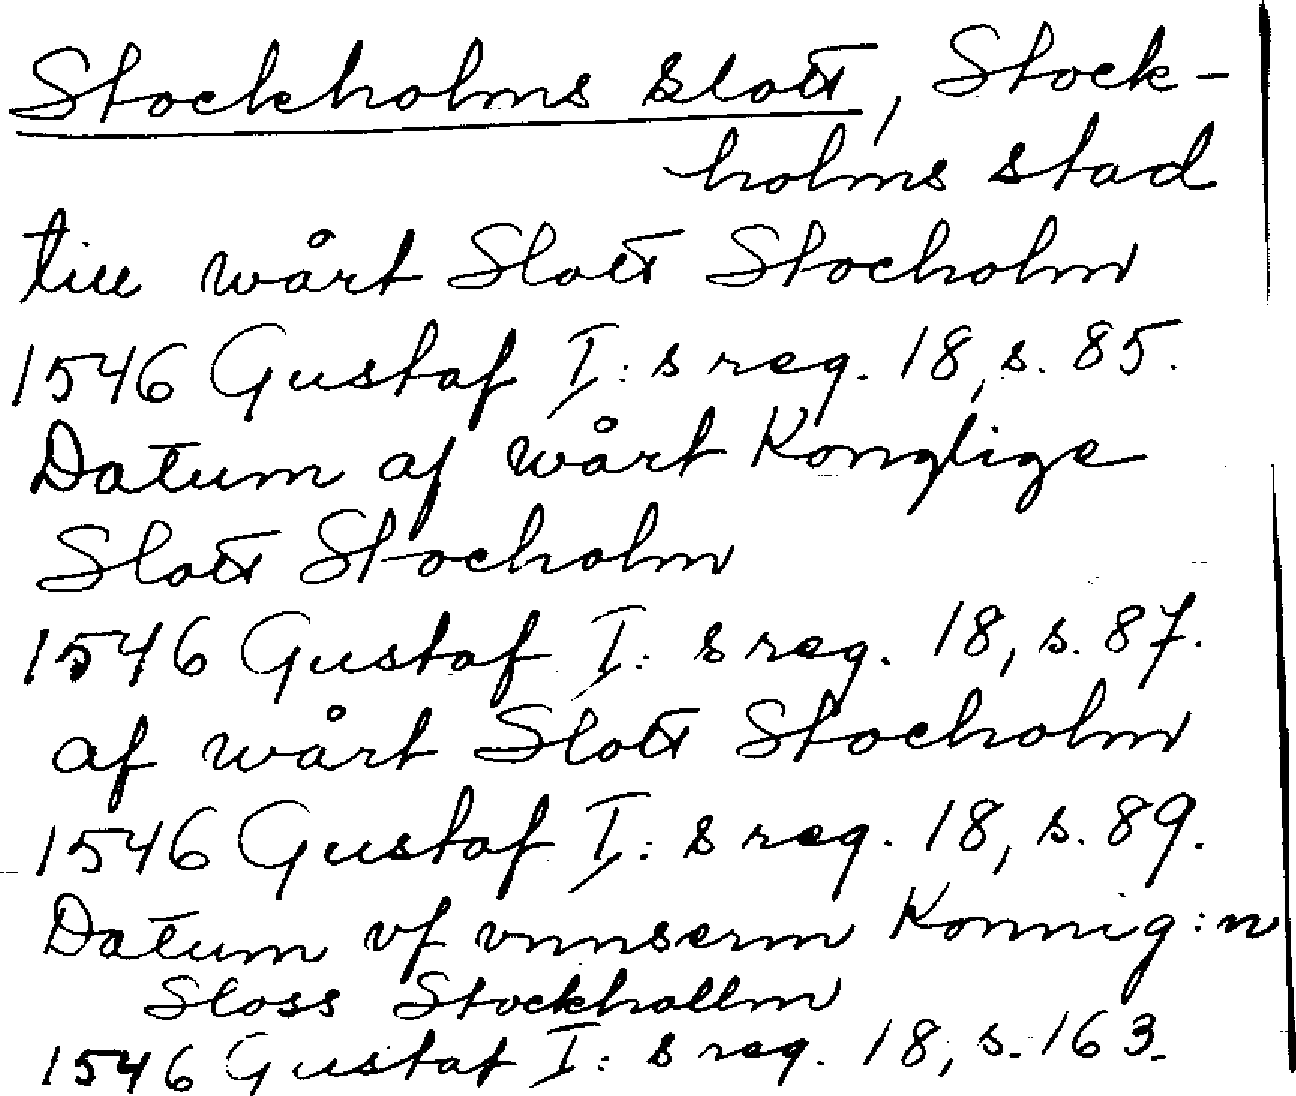 Stockholms slott, Stock-
holms stad
till wårt Slott Stocholm
1546 Gustaf I:s reg. 18, s. 85.
Datum af wårt Konglige
Slott Stocholm
1546 Gustaf I:s reg. 18, s. 87.
af wårt Slott Stocholm
1546 Gustaf I:s reg. 18, s. 89.
Datum vf vnnserm Konnig:n
Sloss Stockhollm
1546 Gustaf I:s reg. 18, s. 163.